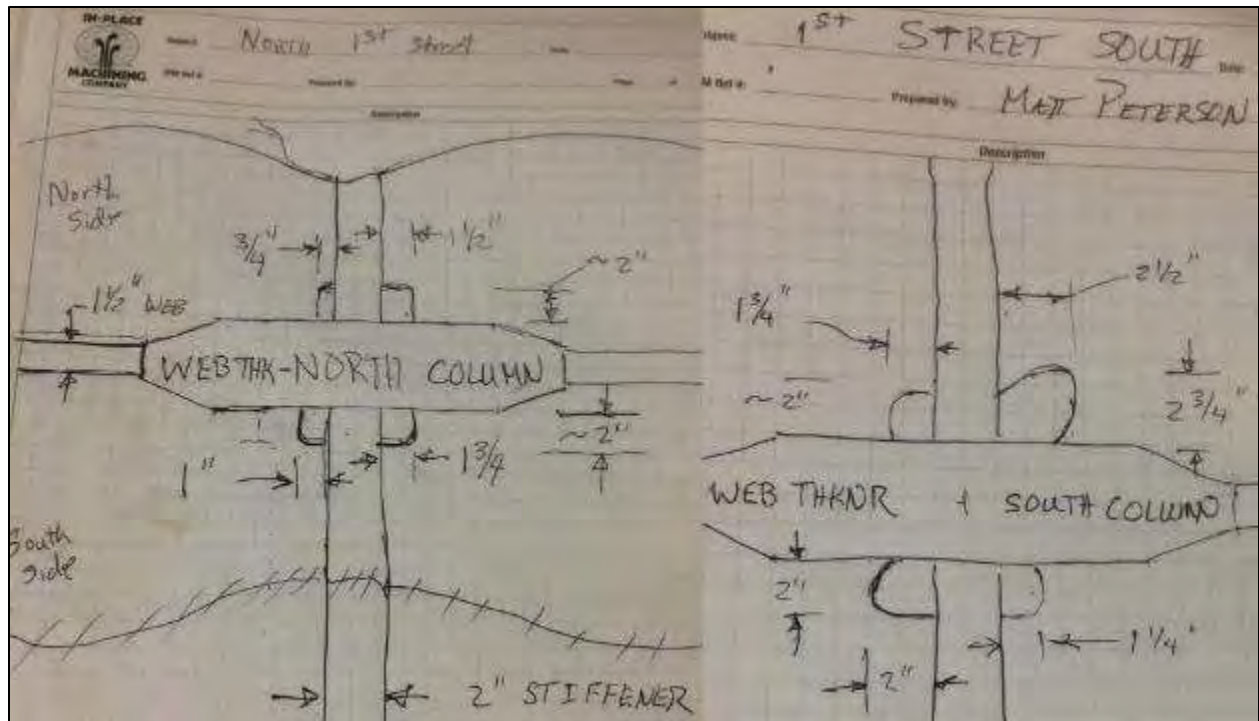 IN-PLACE
MACHINING
COMPANY
North 1st Street
Description
North
Side
3/4"
1 1/2"
~2"
1 1/2" WEB
WEB THK-NORTH COLUMN
~2"
1"
1 3/4
South
side
2" STIFFENER
1st STREET SOUTH
Date:
Prepared by: MATT PETERSON
Description
2 1/2"
1 3/4"
~2"
2 3/4"
WEB THKNR + SOUTH COLUMN
2"
1 1/4"
2"